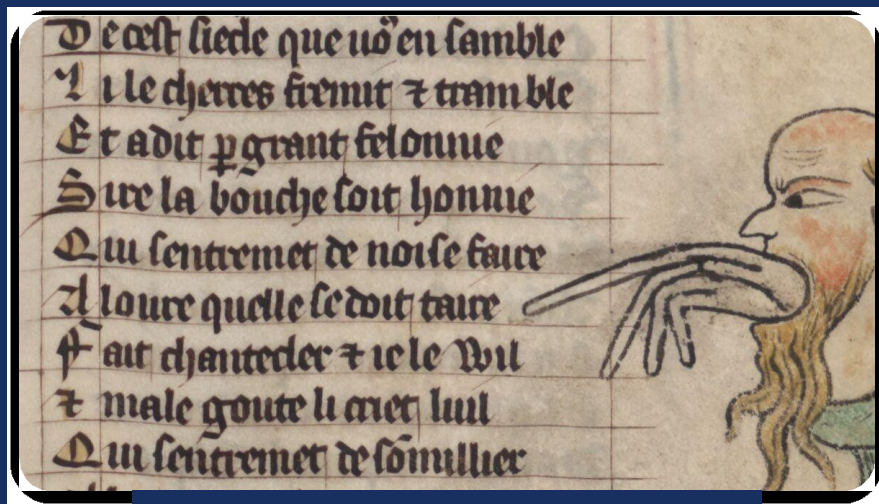 De cest siecle que uo9 en samble
Li lecherres fremist ⁊ tramble
Et a dit ꝑ grant felonnie
Sire la bouche soit honnie
Qui sentremet de noise faire
A loure quelle se doit taire
Fait chantecler ⁊ ie le wil
⁊ male goute li criet luil
Qui sentremet de sõmillier